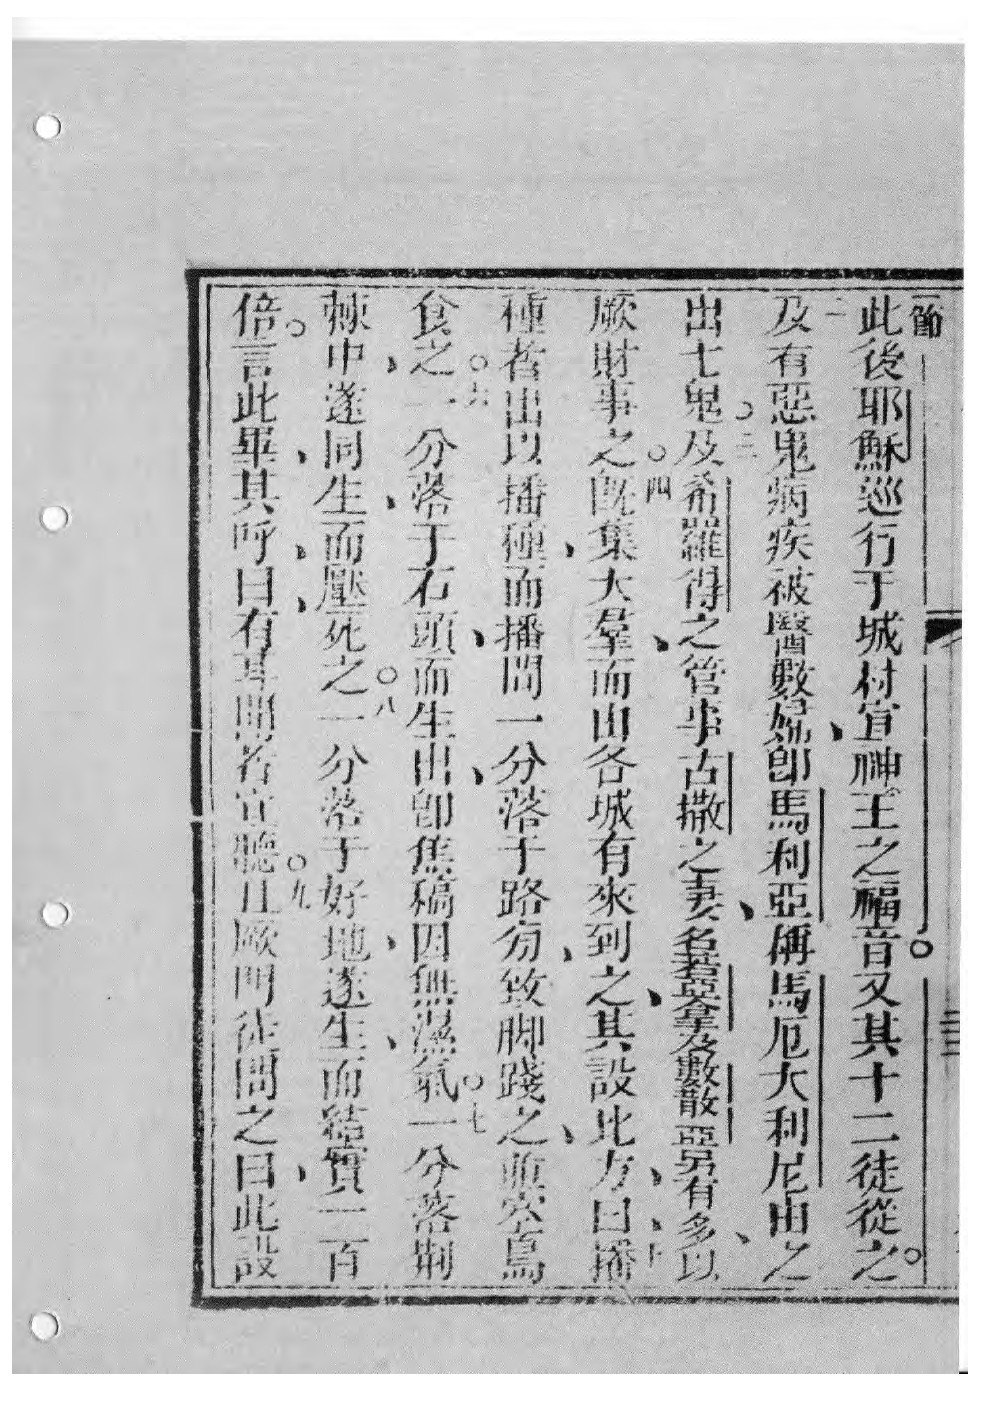 節
此後耶穌巡行于城村宣神王之福音。又其十二徒從之。
二及有惡鬼病疾被醫數婦、卽馬利亞稱馬厄大利尼由之
出七鬼○三及希羅得之管事古撒之妻、名若亞拿及數散亞另有多、以
厥財事之○四旣集大羣、而由各城有來到之、其設比方、曰、播
種者出以播種、而播間一分落于路旁、致脚踐之、並空鳥
食之○六一分落于石頭、而生出、卽焦稿因無濕氣○七一分落荊
棘中、遂同生、而壓死之○八一分落于好地、遂生、而結實一百
倍。言此畢、其呼、曰、有耳聞者宜聽○九且厥門徒問之曰、此設